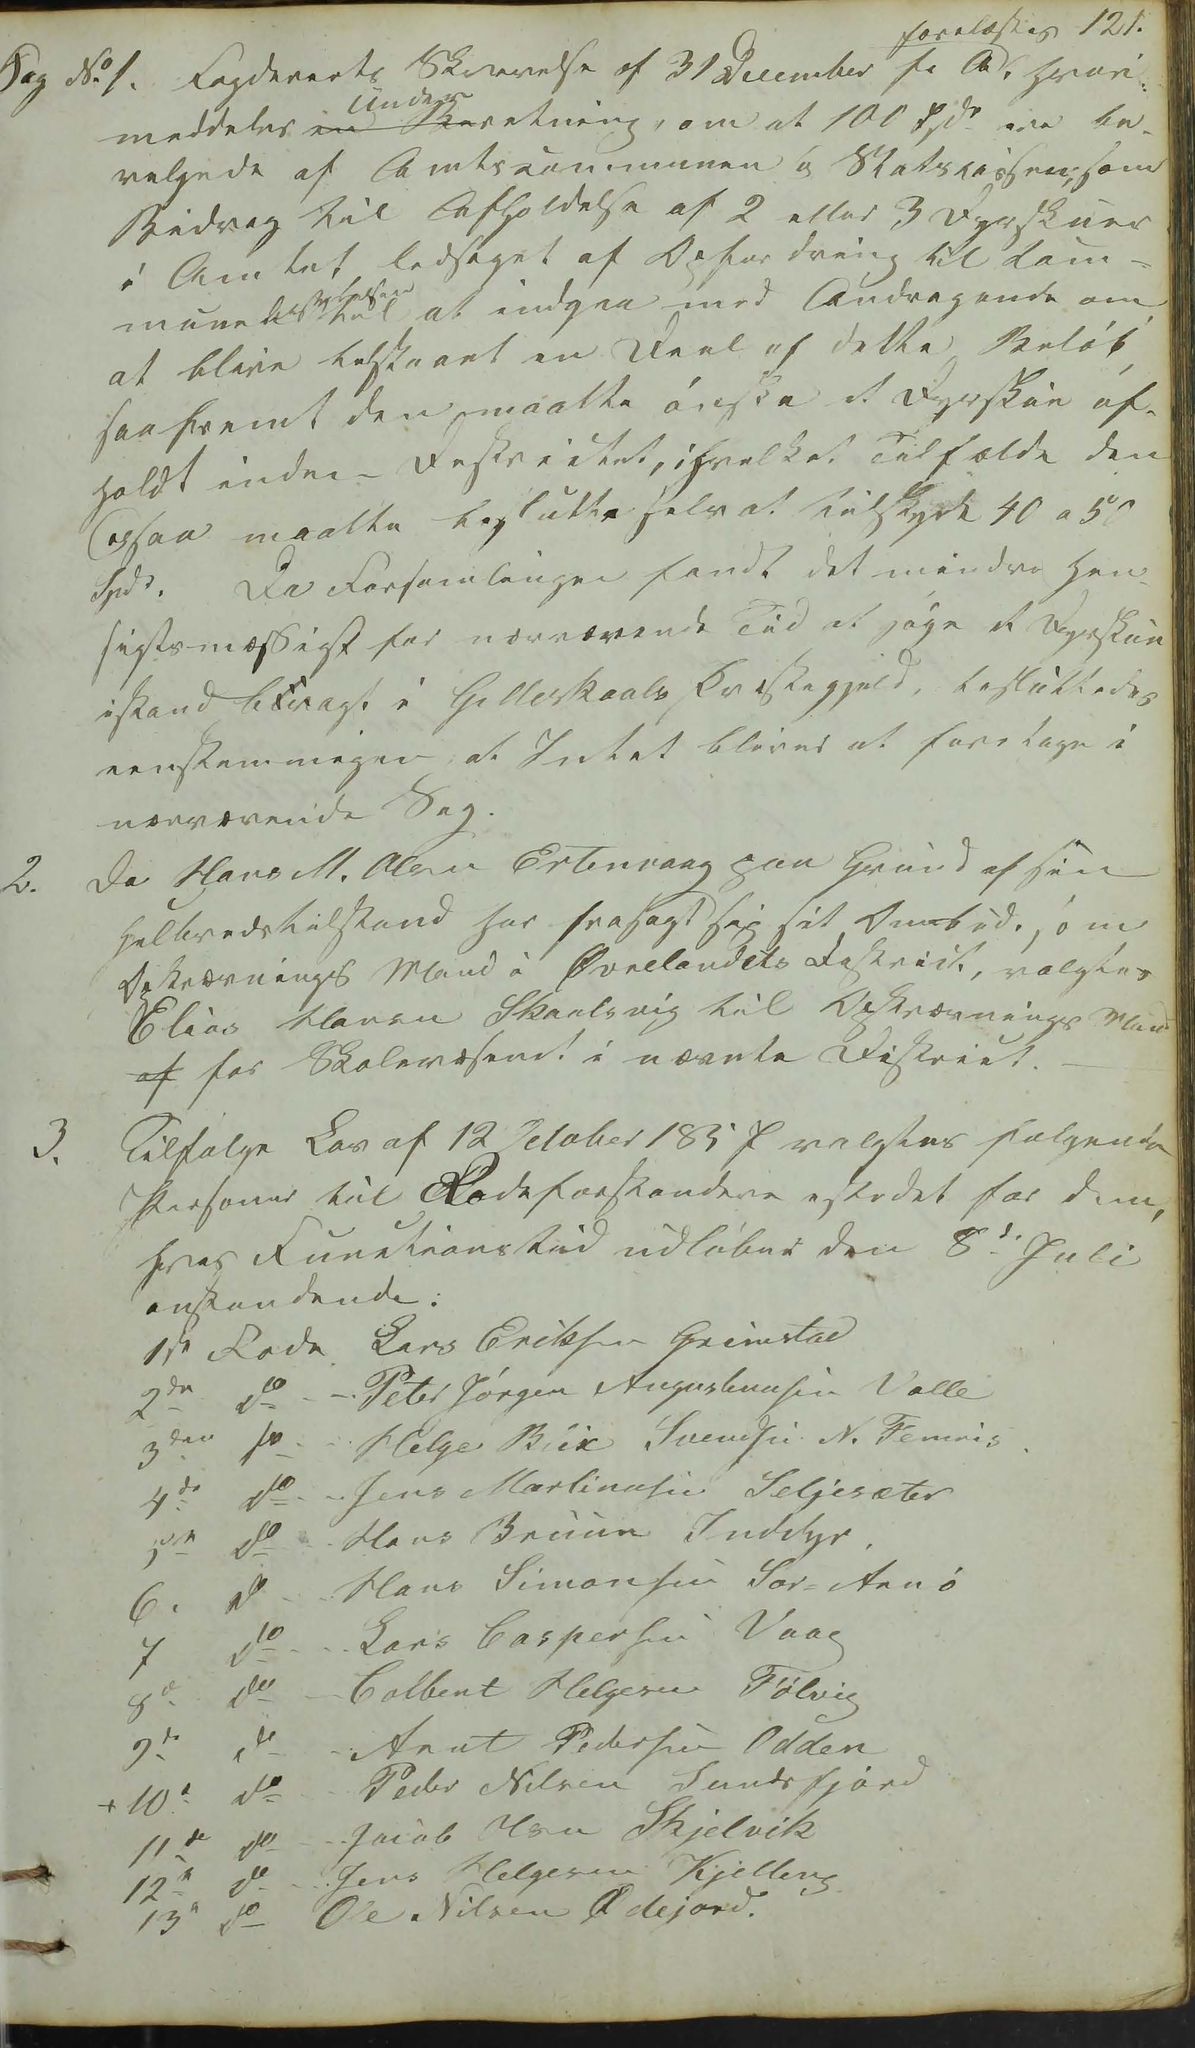 forelæstes 121.
Sag No 1. Fogderiets Skrivelse af 31 December f. A. hvori
meddeles en Under Beretning, om at 100 Spd. ere be-
vilgede af Amtscommunen og Statskassen, som
Bidrag til Afholdelse af 2 eller 3 Dyrskuer
i Amtet, ledsaget af Opfordring til Com-
munebestyrelsen til at indgaa med Andragende om
at blive tilstaaet en Deel af dette Beløb,
saafremt den maatte ønske et Dyrskue af-
holdt inden Distriktet, i hvilket Tilfælde den
ogsaa maatte beslutte selv at tilskyde 40 a 50
Spd. Da Forsamlingen fandt det mindre hen-
sigtsmæssigt for nærværende Tid at søge et Dyrskue
istand bragt i Gilleskaals Præstegjeld, besluttedes
eenstemmigen, at Intet bliver at foretage i
nærværende Sag.
2. Da Hans M. Olsen Ertenvaag paa Grund af sin
Helbredstilstand har frasagt sig sit Ombud som
Opkrævnings Mand i Øvrelandets Distrikt, valgtes
Elias Hansen Skaalsvig til Opkrævnings Mand
af for Skolevæsenet i nævnte Distrikt.
3. Tilfølge Lov af 12 October 1857 valgtes følgende
Personer til Rodeforstandere istedet for dem,
hvis Functionstid udløber den 8de Juli
anstundende:
1ste Rode Lars Eriksen Grimstad
2den do Peter Jørgen Augustinusen Valle
3den do Helge Buix Svendsen N. Femris
4de do Jens Martinusen Seljesæter
5te do Hans Bruun Inddyr.
6. do Hans Simonsen Sør-Arnø
7 do Lars Caspersen Vaag
8de do Colbent Helgesen Følvig
9de do Arnt Pedersen Odden
+ 10de do Peder Nilsen Sundsfjord
11te do Jacob Olsen Skjelvik
12te do Jens Helgesen Kjelling
13de do Ole Nilsen Ødejord.